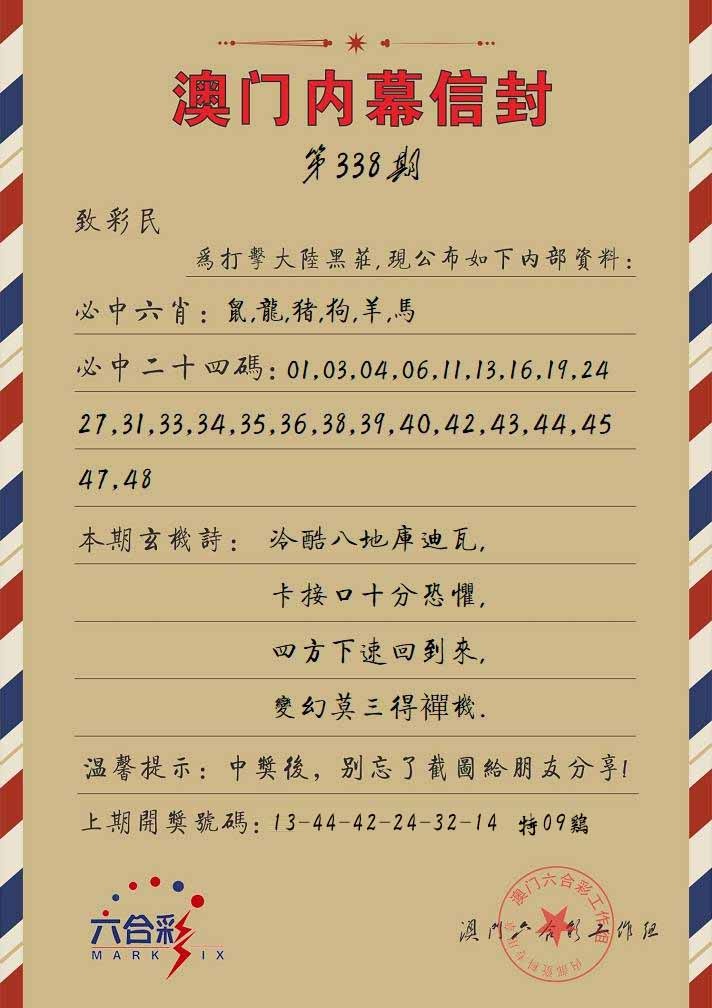 澳门内幕信封
第338期
致彩民
爲打擊大陸黑莊,現公布如下内部資料:
必中六肖:鼠,龍,猪,狗,羊,馬
必中二十四碼:01,03,04,06,11,13,16,19,24
27,31,33,34,35,36,38,39,40,42,43,44,45
47,48
本期玄機詩: 冷酷八地庫迪瓦,
卡接口十分恐懼,
四方下速回到來,
變幻莫三得襌機.
温馨提示:中獎後, 别忘了截圖給朋友分享!
上期開獎號碼:13-44-42-24-32-14 特09鷄
六合彩
MARK SIX
澳門六合彩工作組
澳门六合彩工作组
内部资料专用章